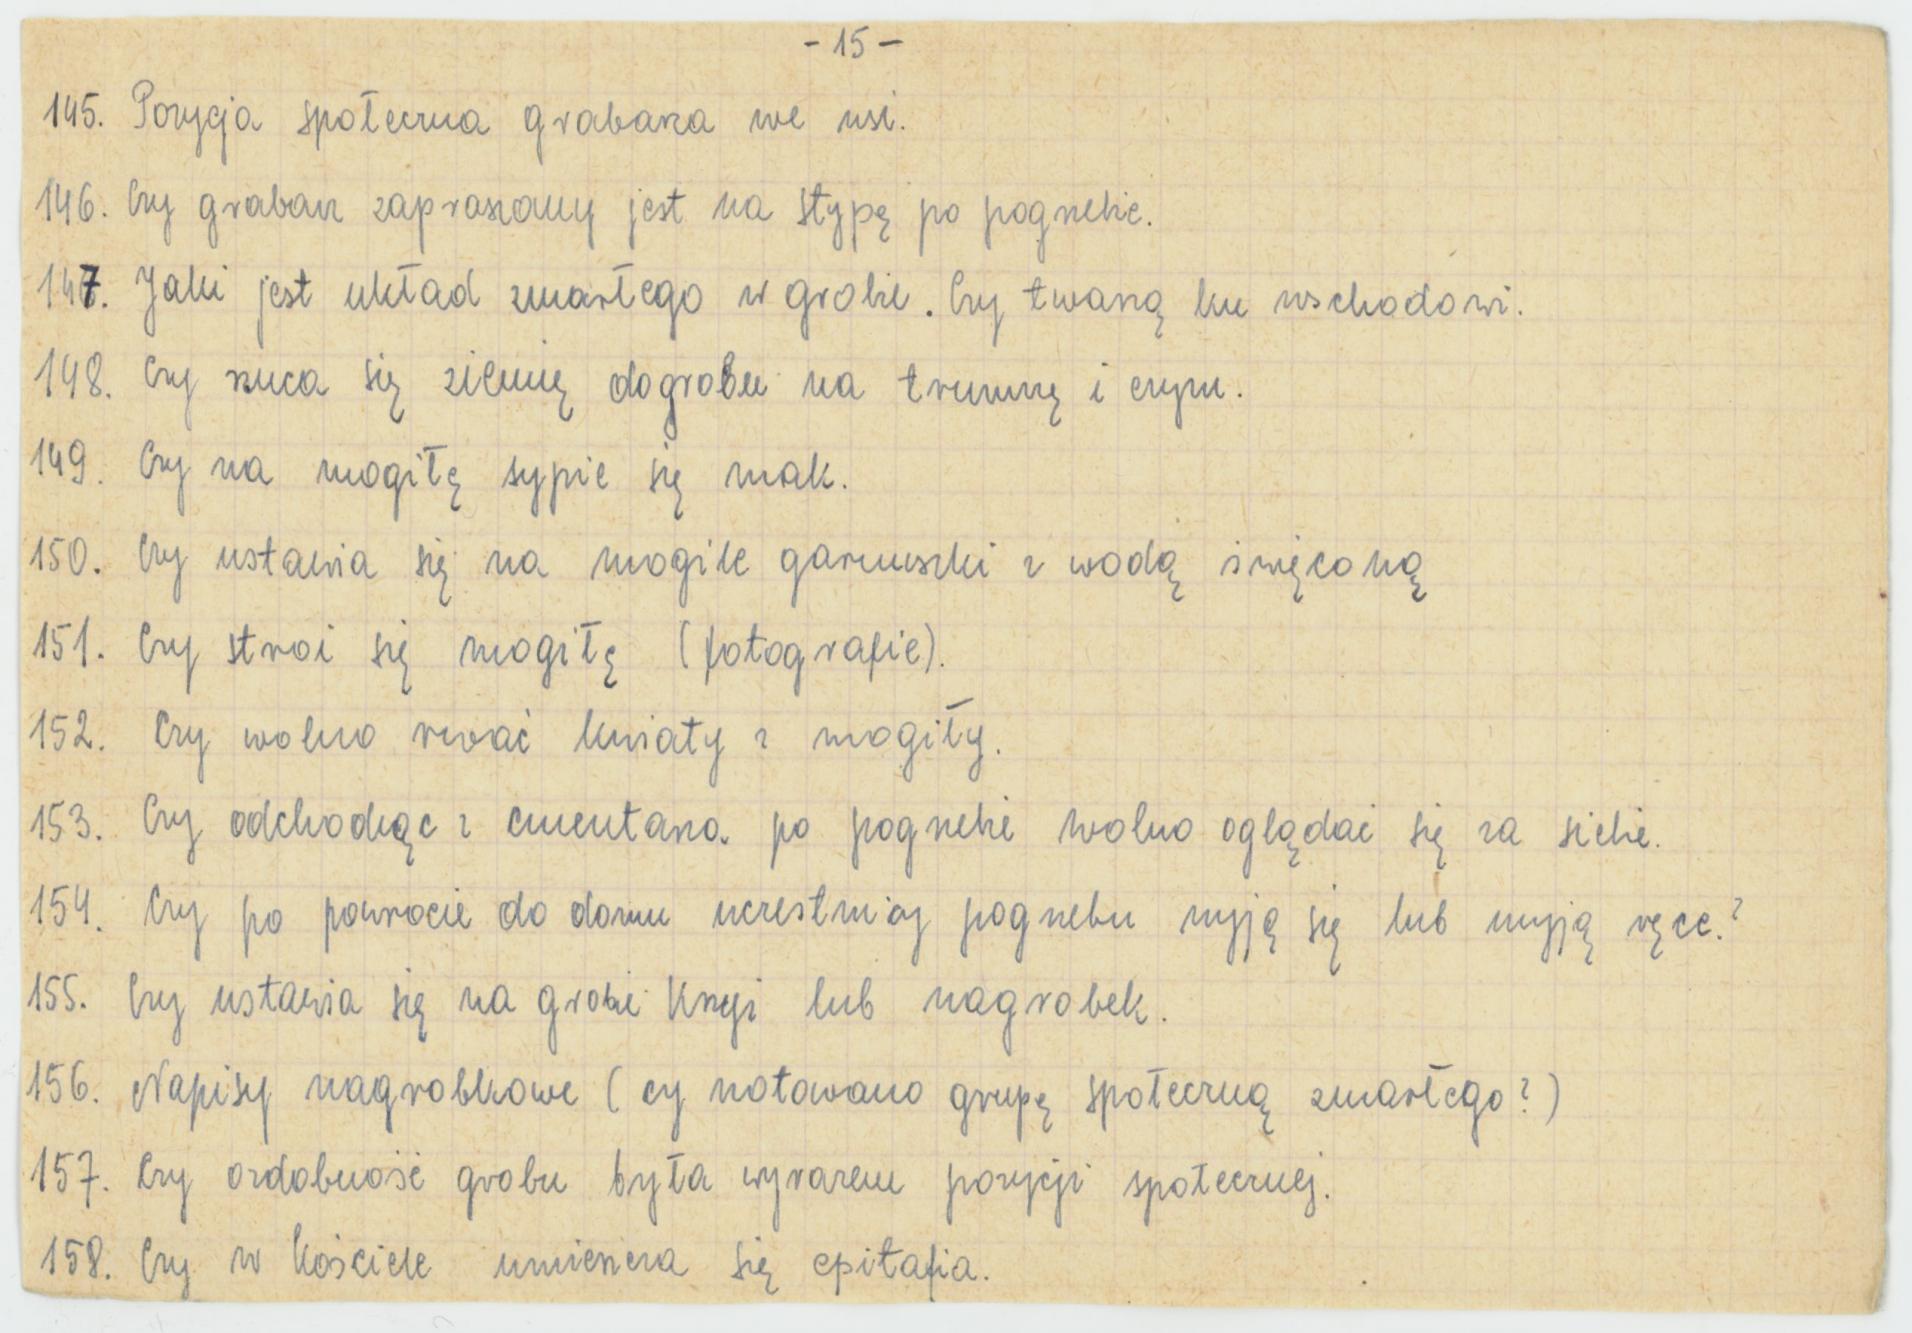 - 15 -
145. Pozycja społeczna grabarza we wsi.
146. Czy grabarz zapraszany jest na stypę po pogrzebie.
147. Jaki jest układ zmarłego w grobie. Czy twarzą ku wschodowi.
148. Czy rzuca się ziemię do grobu na trumnę i czym.
149. Czy na mogiłę sypie się mak.
150. Czy ustawia się na mogile garnuszki z wodą święconą
151. Czy stroi się mogiłę (fotografie).
152. Czy wolno rwać kwiaty z mogiły.
153. Czy odchodząc z cmentarza po pogrzebie wolno oglądać się za siebie.
154. Czy po powrocie do domu uczestnicy pogrzebu myją się lub myją ręce.?
155. Czy ustawia się na grobie krzyż lub nagrobek.
156. Napisy nagrobkowe (cy notowano grupę społeczną zmarłego?)
157. Czy ozdobność grobu była wyrazem pozycji społecznej.
158. Czy w kościele umieszcza się epitafia.